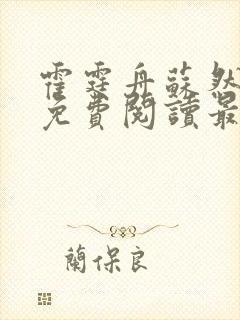 霍霆舟蘇然
免費閱讀最
蘭保良